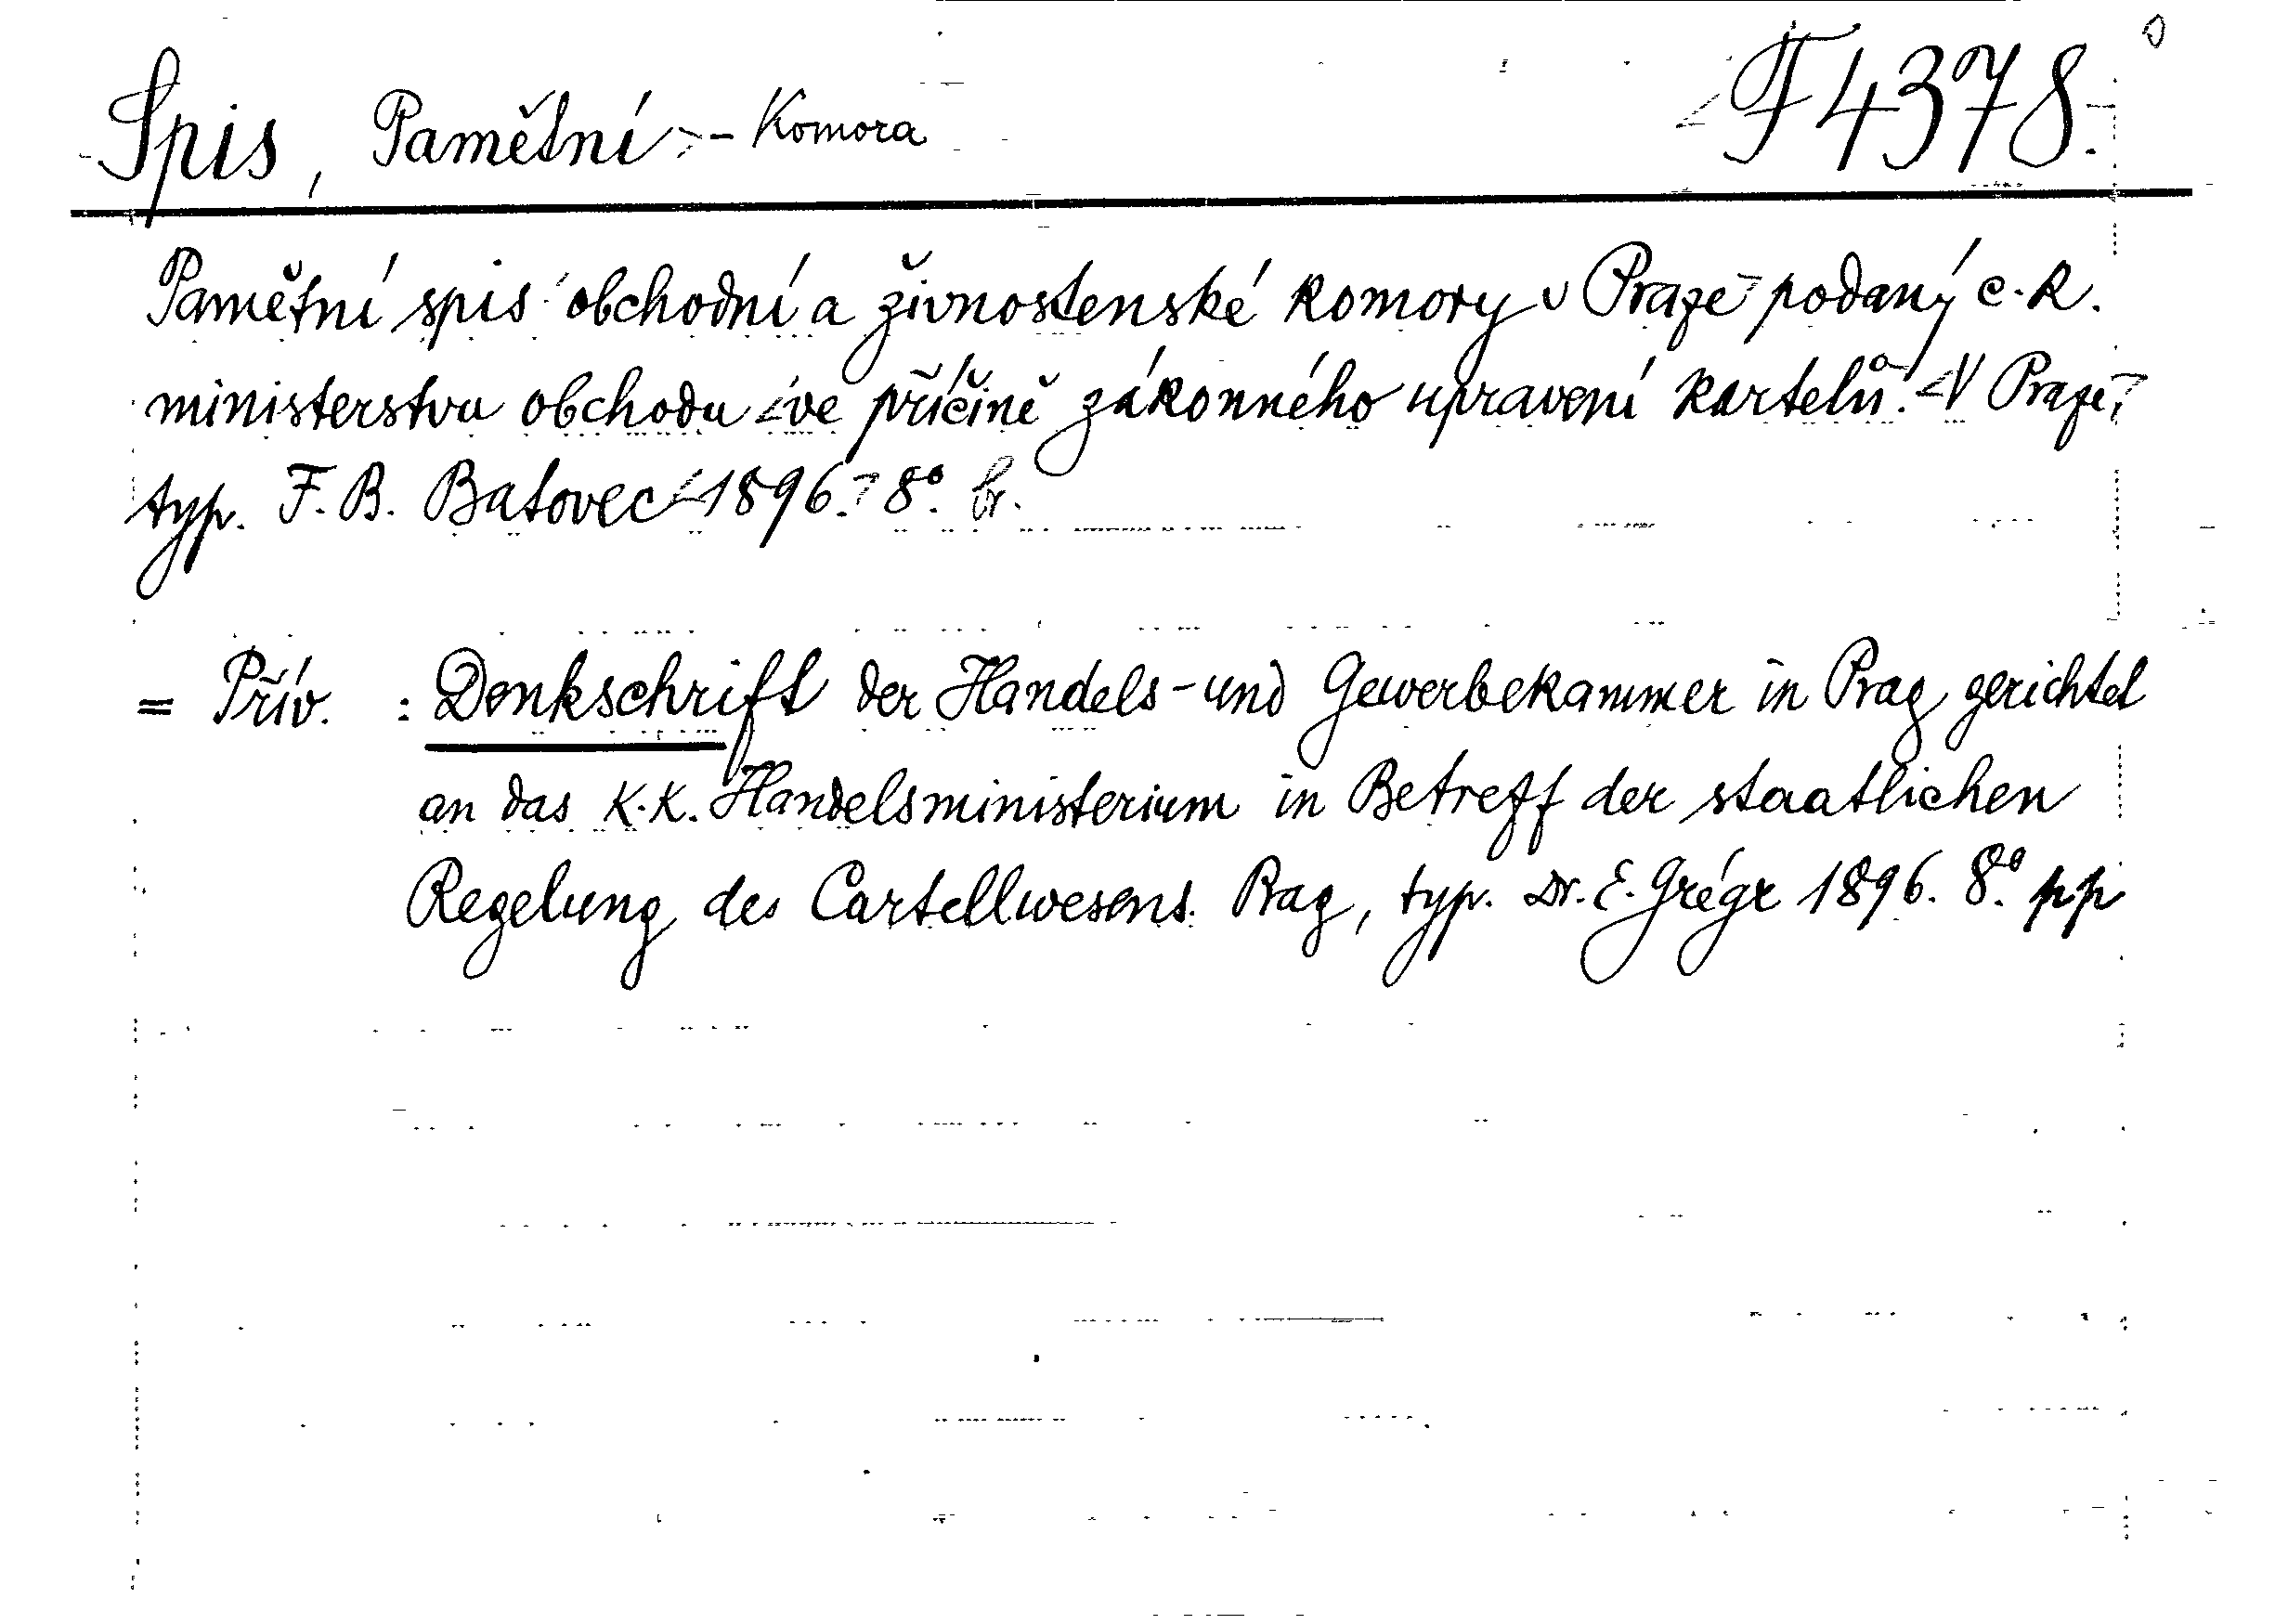 Spis, Pamětní - Komora F 4378.
Pamětní spis obchodní a živnostenské komory v Praze podaný c. k.
ministerstvu obchodu ve příčině zákonného upravení kartelů. V Praze,
typ. F. B. Batovec 1896. 8°. br.
= Přív. : Denkschrift der Handels- und Gewerbekammer in Prag gerichtet
an das K. K. Handelsministerium in Betreff der staatlichen
Regelung des Cartellwesens. Prag, typ. Dr. E. Grégr 1896. 8°. pp